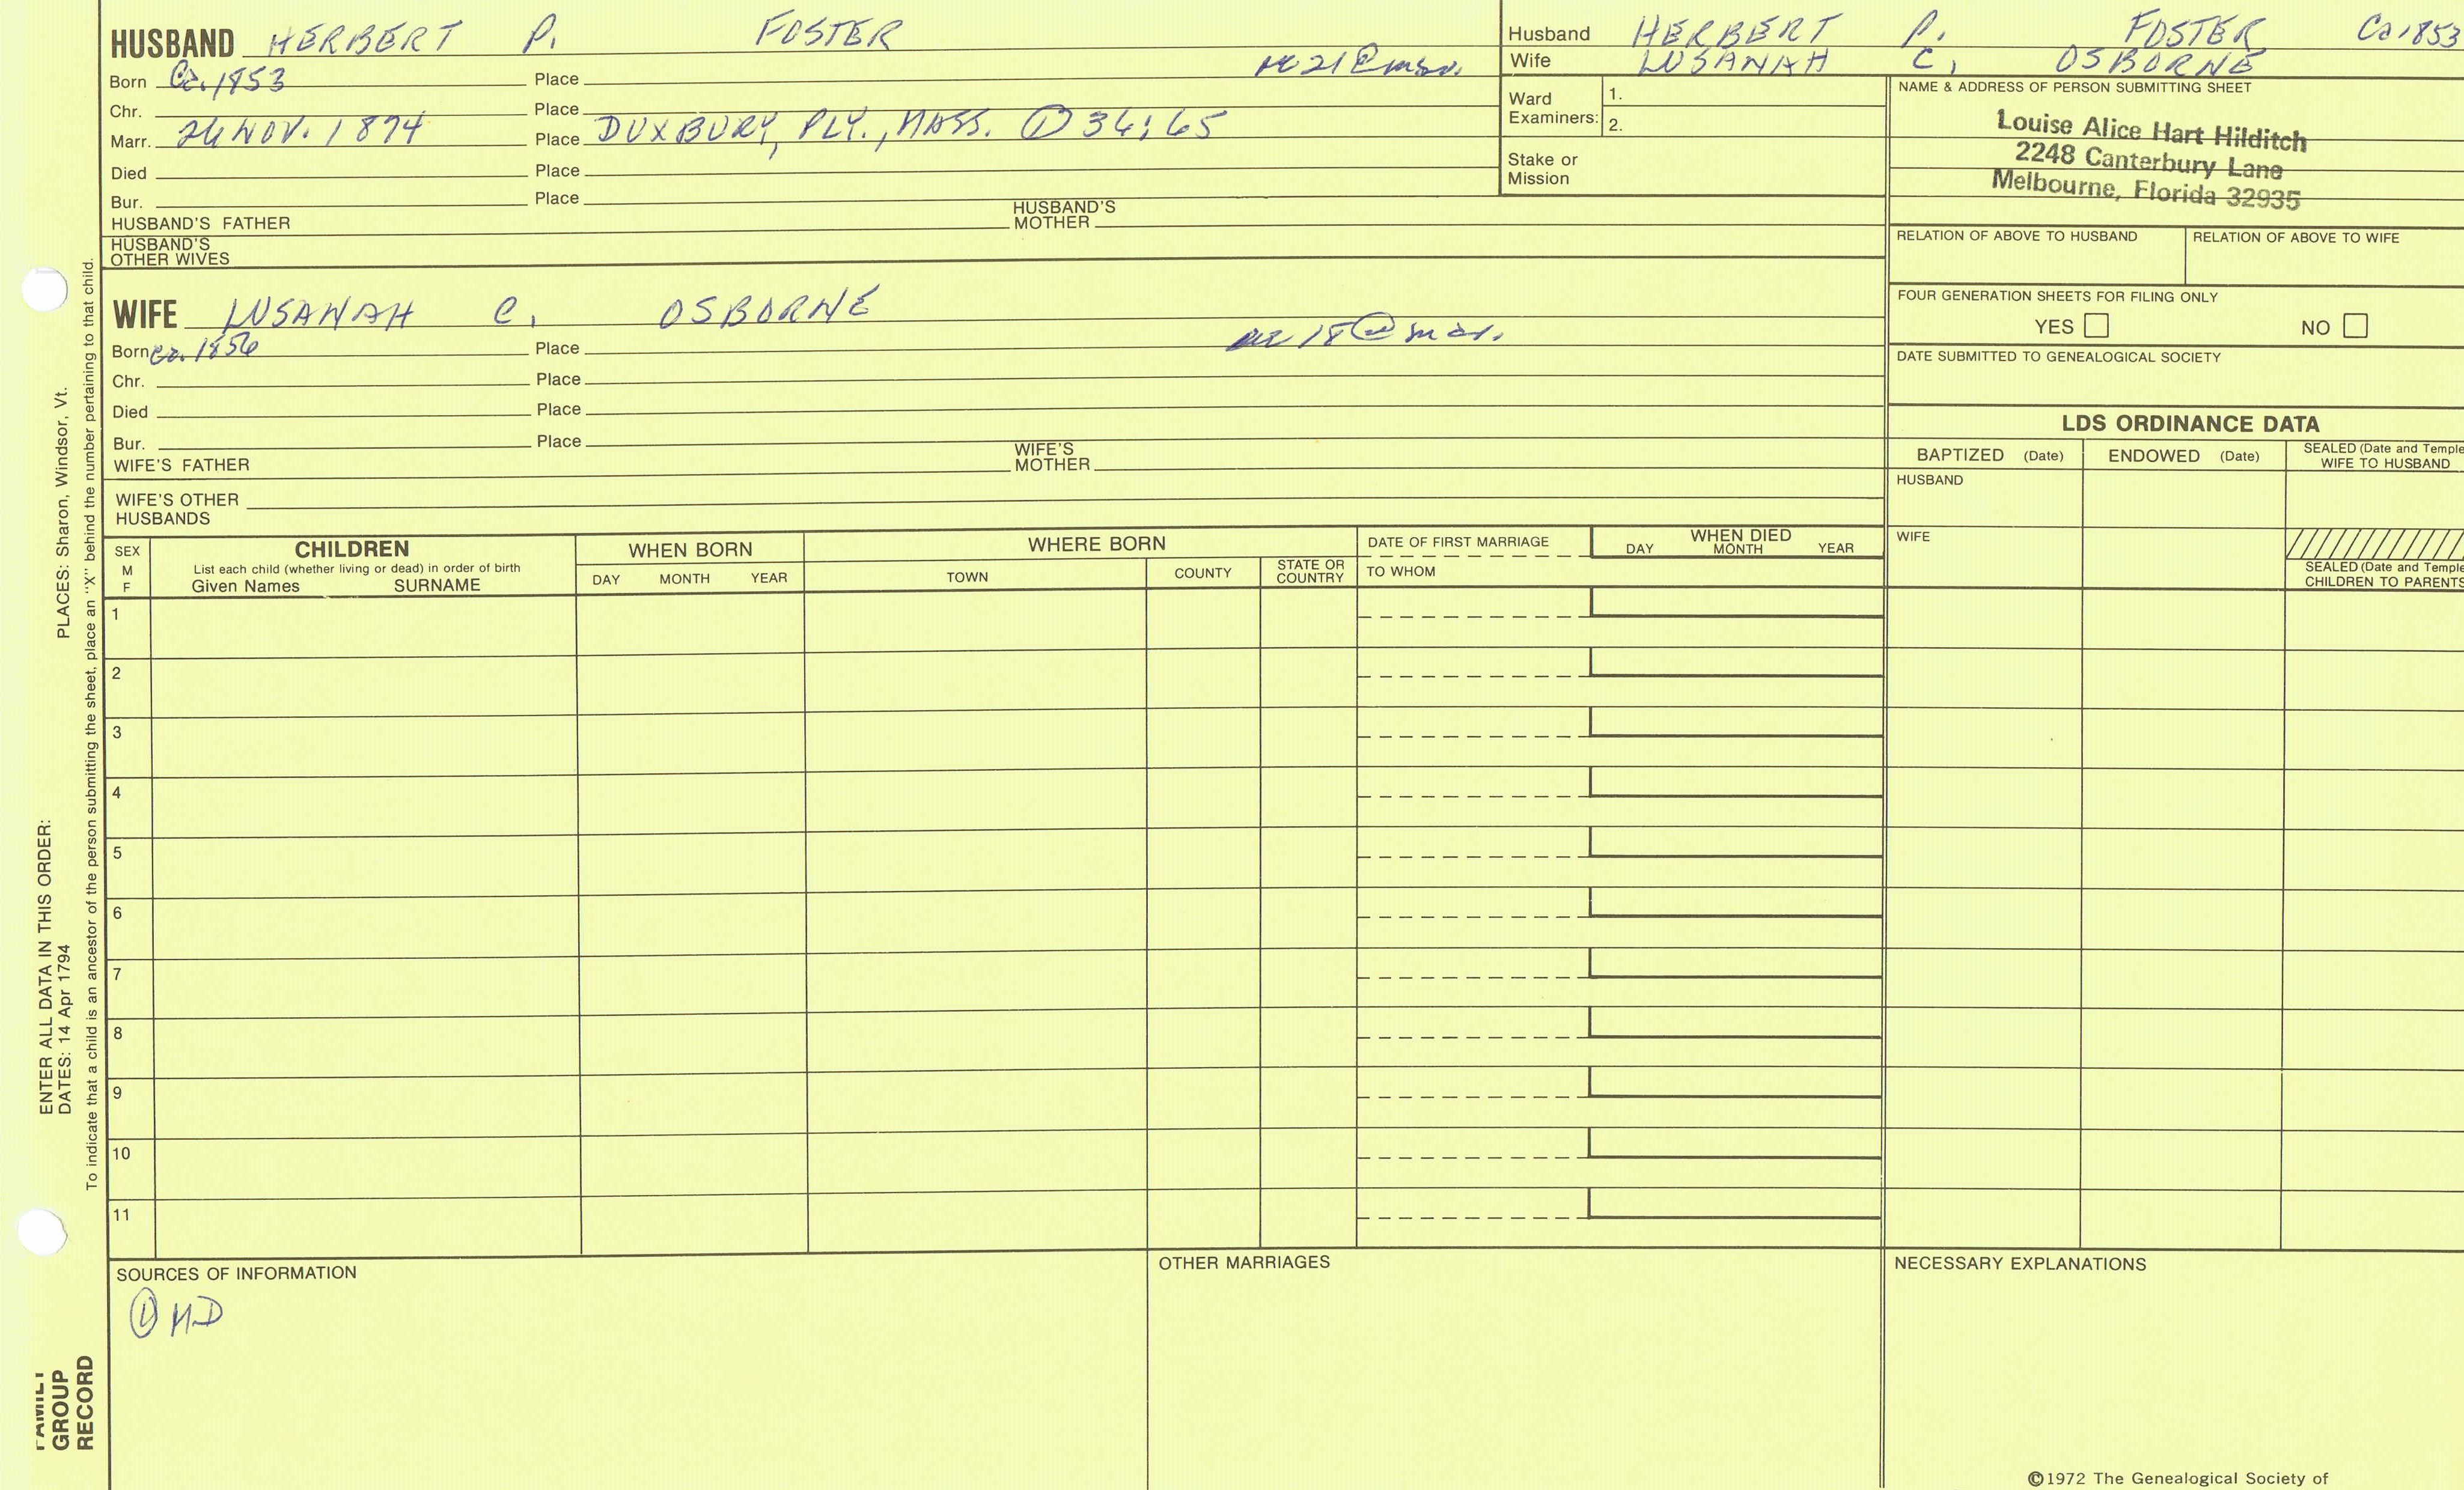 HUSBAND HERBERT P. FOSTER
Born Ca. 1853 Place
Chr. Place
Marr. 24 NOV. 1874 Place DUXBURY, PLY., MASS. ① 34:65
Died Place
Bur. Place
HUSBAND'S FATHER HUSBAND'S MOTHER
HUSBAND'S
OTHER WIVES
21 @ mar.
Husband HERBERT P. FOSTER Ca 1853
Wife LUSANAH C. OSBORNE
Ward
Examiners:
1.
2.
Stake or
Mission
NAME & ADDRESS OF PERSON SUBMITTING SHEET
Louise Alice Hart Hilditch
2248 Canterbury Lane
Melbourne, Florida 32935
RELATION OF ABOVE TO HUSBAND RELATION OF ABOVE TO WIFE
FOUR GENERATION SHEETS FOR FILING ONLY
YES NO
DATE SUBMITTED TO GENEALOGICAL SOCIETY
WIFE LUSANAH C. OSBORNE
Born ca. 1856 Place 18 @ mar.
Chr. Place
Died Place
Bur. Place
WIFE'S FATHER WIFE'S MOTHER
WIFE'S OTHER
HUSBANDS
LDS ORDINANCE DATA
BAPTIZED (Date) ENDOWED (Date) SEALED (Date and Temple
WIFE TO HUSBAND
HUSBAND
WIFE
SEALED (Date and Temple
CHILDREN TO PARENTS
SEX
M
F
CHILDREN
List each child (whether living or dead) in order of birth
Given Names SURNAME
WHEN BORN
DAY MONTH YEAR
WHERE BORN
TOWN COUNTY STATE OR
COUNTRY
DATE OF FIRST MARRIAGE
TO WHOM
WHEN DIED
DAY MONTH YEAR
1
2
3
4
5
6
7
8
9
10
11
SOURCES OF INFORMATION
① MD
OTHER MARRIAGES
NECESSARY EXPLANATIONS
©1972 The Genealogical Society of
ENTER ALL DATA IN THIS ORDER:
DATES: 14 Apr 1794 PLACES: Sharon, Windsor, Vt.
To indicate that a child is an ancestor of the person submitting the sheet, place an "X" behind the number pertaining to that child.
FAMILY
GROUP
RECORD